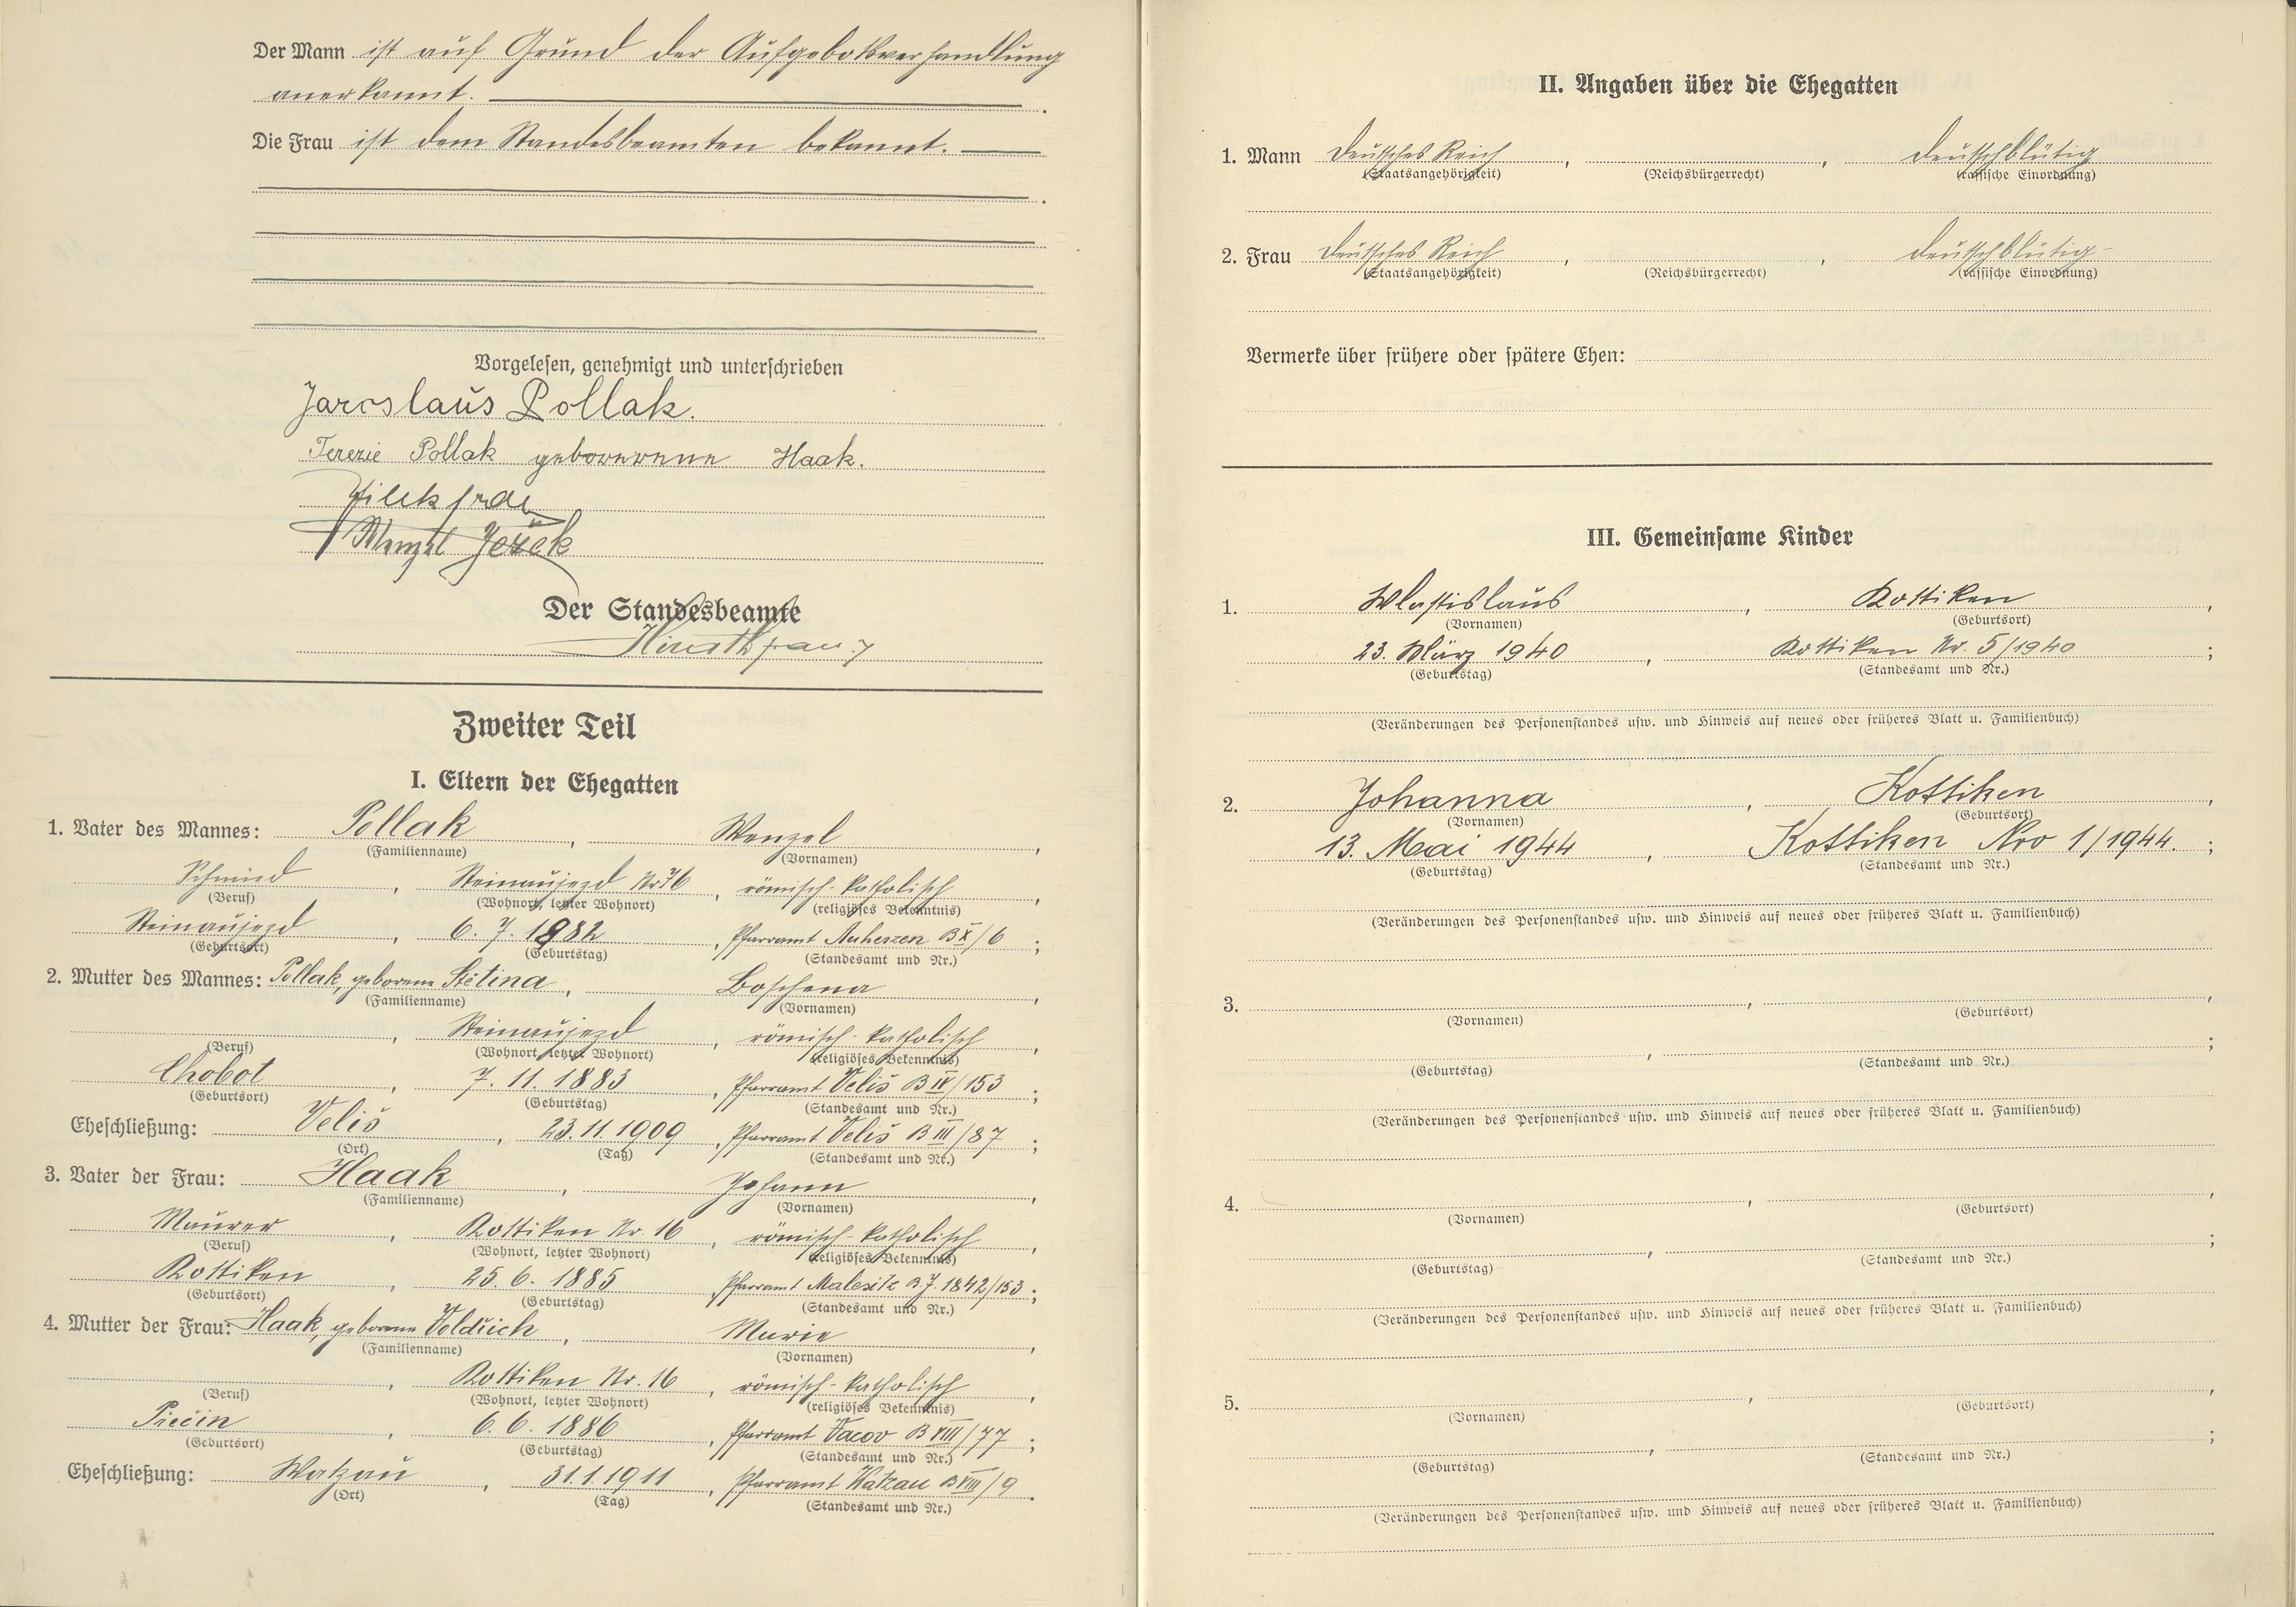 Der Mann ist auf Grund der Aufgebotsverhandlung
anerkannt.
Die Frau ist dem Standesbeamten bekannt.
Vorgelesen, genehmigt und unterschrieben
Jaroslaus Pollak.
Terezie Pollak geborenene Haak.
Wenzel Ježek
Der Standesbeamte
Zweiter Teil
I. Eltern der Ehegatten
1. Vater des Mannes: Pollak, Wenzel,
(Familienname) (Vornamen)
Schmied, Steinaujezd Nr. 76, römisch-katholisch,
(Beruf) (Wohnort, letzter Wohnort) (religiöses Bekenntnis)
Steinaujezd, 6. 7. 1882, Pfarramt Auherzen B X/6;
(Geburtsort) (Geburtstag) (Standesamt und Nr.)
2. Mutter des Mannes: Pollak, geborene Štětina, Boschena,
(Familienname) (Vornamen)
, Steinaujezd, römisch-katholisch,
(Beruf) (Wohnort, letzter Wohnort) (religiöses Bekenntnis)
Chobot, 7. 11. 1883, Pfarramt Veliš B IV/153;
(Geburtsort) (Geburtstag) (Standesamt und Nr.)
Eheschließung: Veliš, 23. 11. 1909, Pfarramt Veliš B III/87;
(Ort) (Tag) (Standesamt und Nr.)
3. Vater der Frau: Haak, Johann,
(Familienname) (Vornamen)
Maurer, Kottiken Nr. 16, römisch-katholisch,
(Beruf) (Wohnort, letzter Wohnort) (religiöses Bekenntnis)
Kottiken, 25. 6. 1885, Pfarramt Malesitz B. J. 1842/153;
(Geburtsort) (Geburtstag) (Standesamt und Nr.)
4. Mutter der Frau: Haak, geborene Voldřich, Marie,
(Familienname) (Vornamen)
, Kottiken Nr. 16, römisch-katholisch,
(Beruf) (Wohnort, letzter Wohnort) (religiöses Bekenntnis)
Přečin, 6. 6. 1886, Pfarramt Vacov B VIII/77;
(Geburtsort) (Geburtstag) (Standesamt und Nr.)
Eheschließung: Watzau, 31. 1. 1911, Pfarramt Watzau B VIII/9.
(Ort) (Tag) (Standesamt und Nr.)
II. Angaben über die Ehegatten
1. Mann Deutsches Reich, , deutschblütig
(Staatsangehörigkeit) (Reichsbürgerrecht) (rassische Einordnung)
2. Frau Deutsches Reich, , deutschblütig
(Staatsangehörigkeit) (Reichsbürgerrecht) (rassische Einordnung)
Vermerke über frühere oder spätere Ehen:
III. Gemeinsame Kinder
1. Wlastislaus, Kottiken,
(Vornamen) (Geburtsort)
23. März 1940, Kottiken Nr. 5/1940;
(Geburtstag) (Standesamt und Nr.)
(Veränderungen des Personenstandes usw. und Hinweis auf neues oder früheres Blatt u. Familienbuch)
2. Johanna, Kottiken,
(Vornamen) (Geburtsort)
13. Mai 1944, Kottiken Nro 1/1944.;
(Geburtstag) (Standesamt und Nr.)
(Veränderungen des Personenstandes usw. und Hinweis auf neues oder früheres Blatt u. Familienbuch)
3. , ,
(Vornamen) (Geburtsort)
, ;
(Geburtstag) (Standesamt und Nr.)
(Veränderungen des Personenstandes usw. und Hinweis auf neues oder früheres Blatt u. Familienbuch)
4. , ,
(Vornamen) (Geburtsort)
, ;
(Geburtstag) (Standesamt und Nr.)
(Veränderungen des Personenstandes usw. und Hinweis auf neues oder früheres Blatt u. Familienbuch)
5. , ,
(Vornamen) (Geburtsort)
, ;
(Geburtstag) (Standesamt und Nr.)
(Veränderungen des Personenstandes usw. und Hinweis auf neues oder früheres Blatt u. Familienbuch)